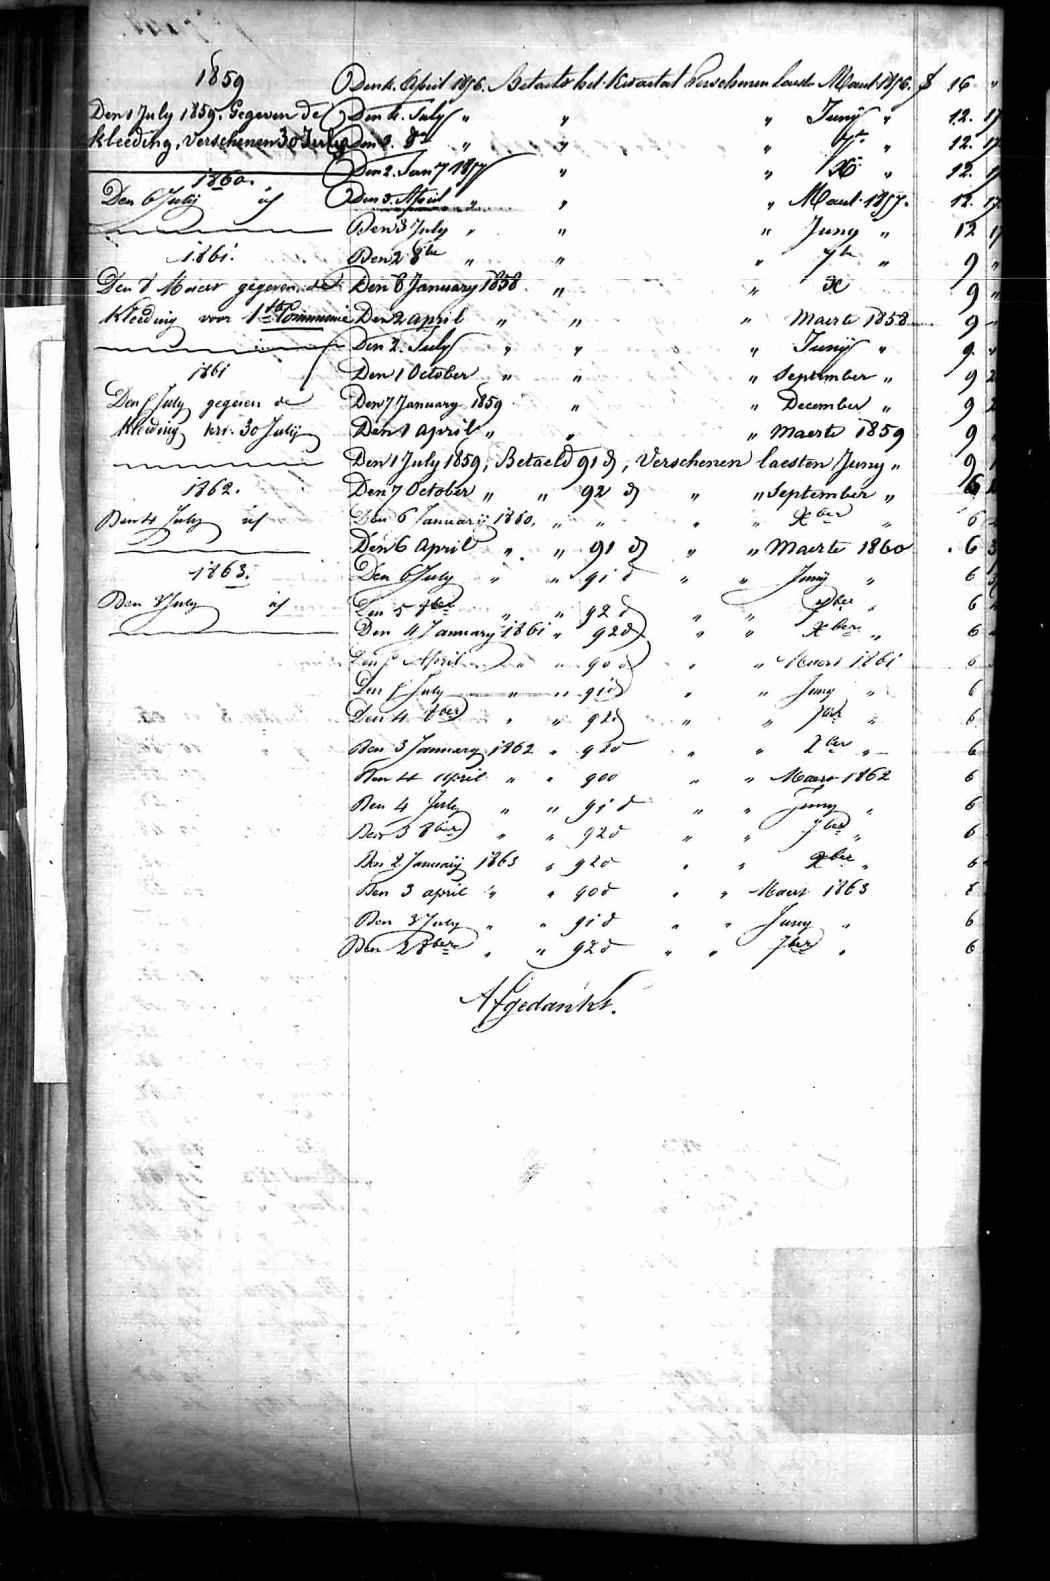 1859
Den 1 July 1859. Gegeven de
kleeding, Verschenen 30 July
1860.
Den 6 Julij id
1861.
Den 8 Maert gegeven de
Kleeding voor 1ste Communie
1861
Den 5 July gegeven de
Kleeding ver. 30 Julij
1862.
Den 4 July id
1863.
Den 3 July id
Den 4. April 1856. Betaeld het Kwartal Verschenen laeste Maert 1856. f 16 "
Den 4. July " " " Junij " 12. 17
Den 3. 8er " " " 7er " 12. 17
Den 2. Jany 1857 " " Xr " 12. 17
Den 3. April " " " Maert 1857. 12. 17
Den 3 July " " " Juny " 12 17
Den 2 8bre " " " 7bre " 9 "
Den 8 January 1858 " " X 9 "
Den 2 april " " " Maerte 1858 9
Den 2. July " " " Junij " 9 "
Den 1 October " " " September " 9 2
Den 7 January 1859 " " December " 9 2
Den 1 april " " " Maerte 1859 9
Den 1 July 1859, Betaeld 91 d, Verschenen laesten Juny " 9 1
Den 7 October " " 92 d " " September " 6
Den 6 Januarij 1860. " " " " Xber " 6
Den 6 April " " 91 d " " Maerte 1860 6 3
Den 6 July " " 91 d " " Junij " 6
Den 5 8ber " " 92 d " " 7ber " 6
Den 4 January 1861 " 92 d " " Xber " 6
Den 5 April " " 90 d " " Maert 1861 6
Den 5 July " " 91 d " " Juny " 6
Den 4 8ber " " 92 d " " 7ber " 6
Den 3 January 1862 " 92 d " " Xber " 6
Den 4 April " " 90 d " " Maert 1862 6
Den 4 July " " 91 d " " Juny " 6
Den 3 8ber " " 92 d " " 7ber " 6
Den 2 Januarij 1863 " 92 d " " Xber " 6
Den 3 april " " 90 d " " Maert 1863 6
Den 3 July " " 91 d " " Juny " 6
Den 2 8ber " " 92 d " " 7ber " 6
Afgedankt.